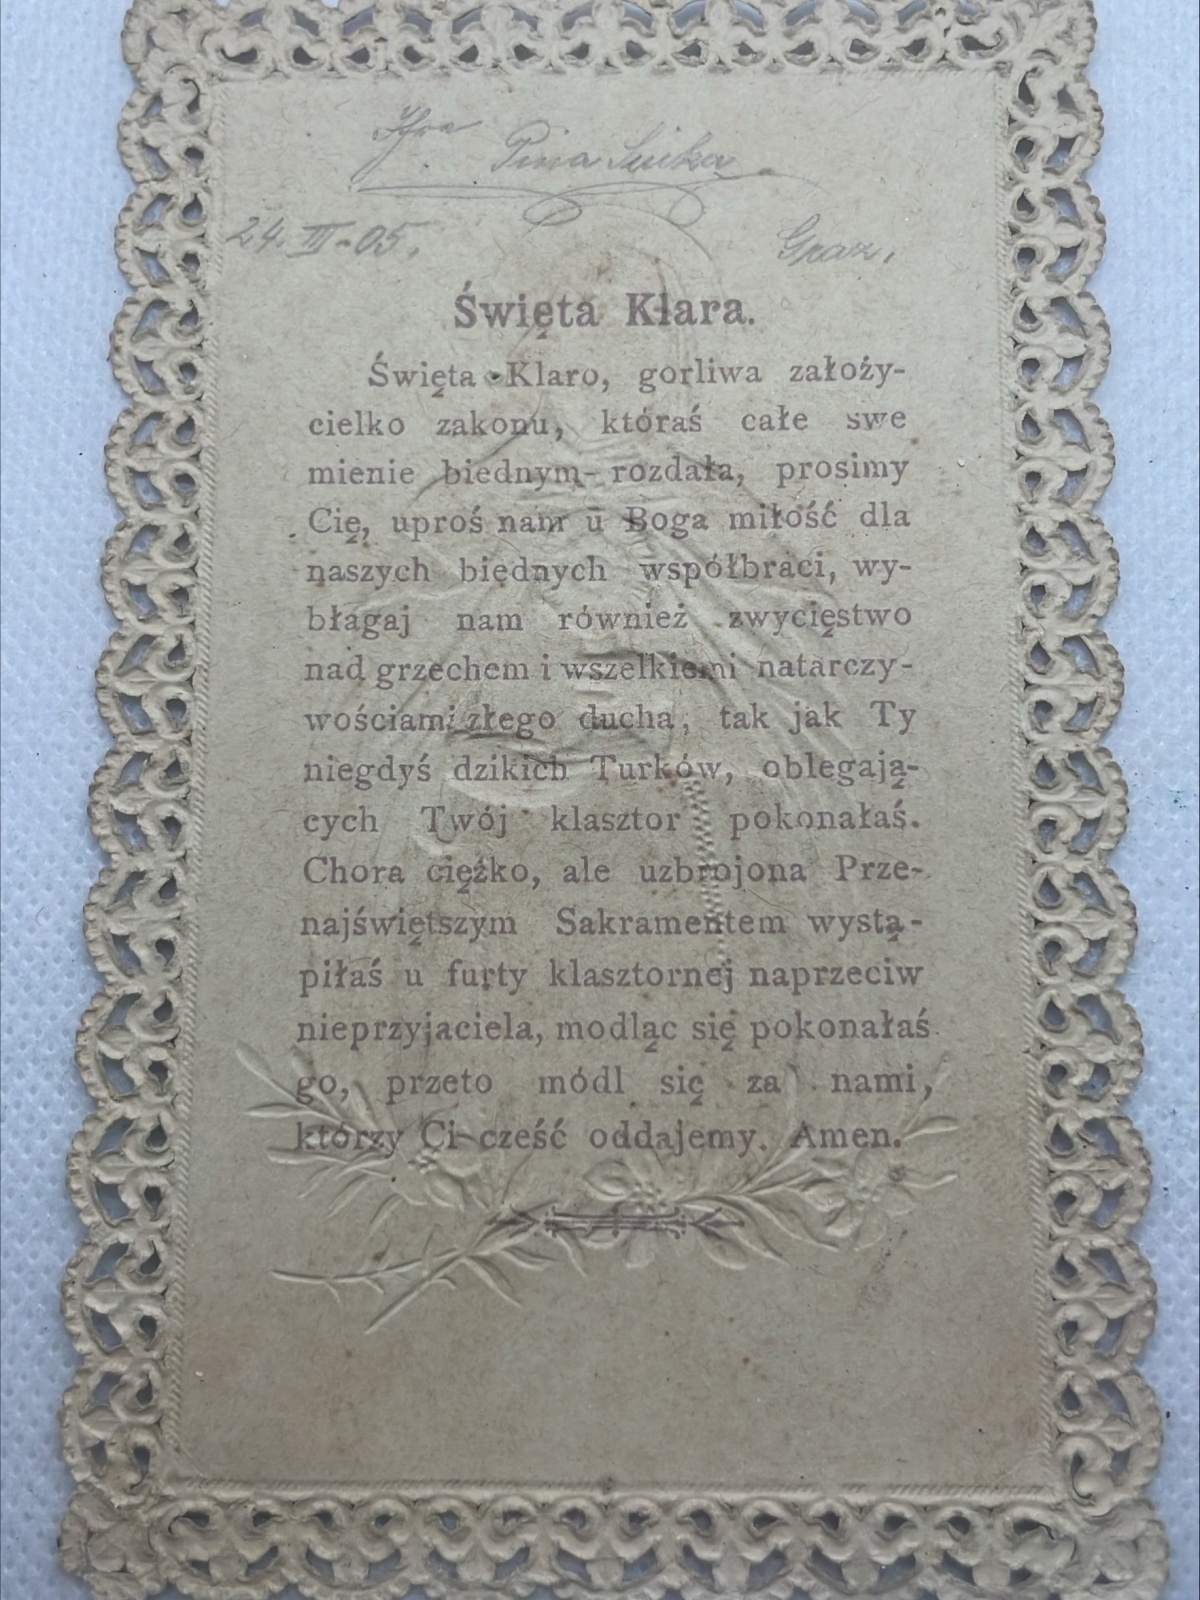 Pina Suika
24. III. 05.
Graz.
Święta Klara.
Święta Klaro, gorliwa założy-
cielko zakonu, któraś całe swe
mienie biednym rozdała, prosimy
Cię, uproś nam u Boga miłość dla
naszych biednych współbraci, wy-
błagaj nam również zwycięstwo
nad grzechem i wszelkiemi natarczy-
wościami złego ducha, tak jak Ty
niegdyś dzikich Turków, oblegają-
cych Twój klasztor pokonałaś.
Chora ciężko, ale uzbrojona Prze-
najświętszym Sakramentem wystą-
piłaś u furty klasztornej naprzeciw
nieprzyjaciela, modląc się pokonałaś
go, przeto módl się za nami,
którzy Ci cześć oddajemy. Amen.